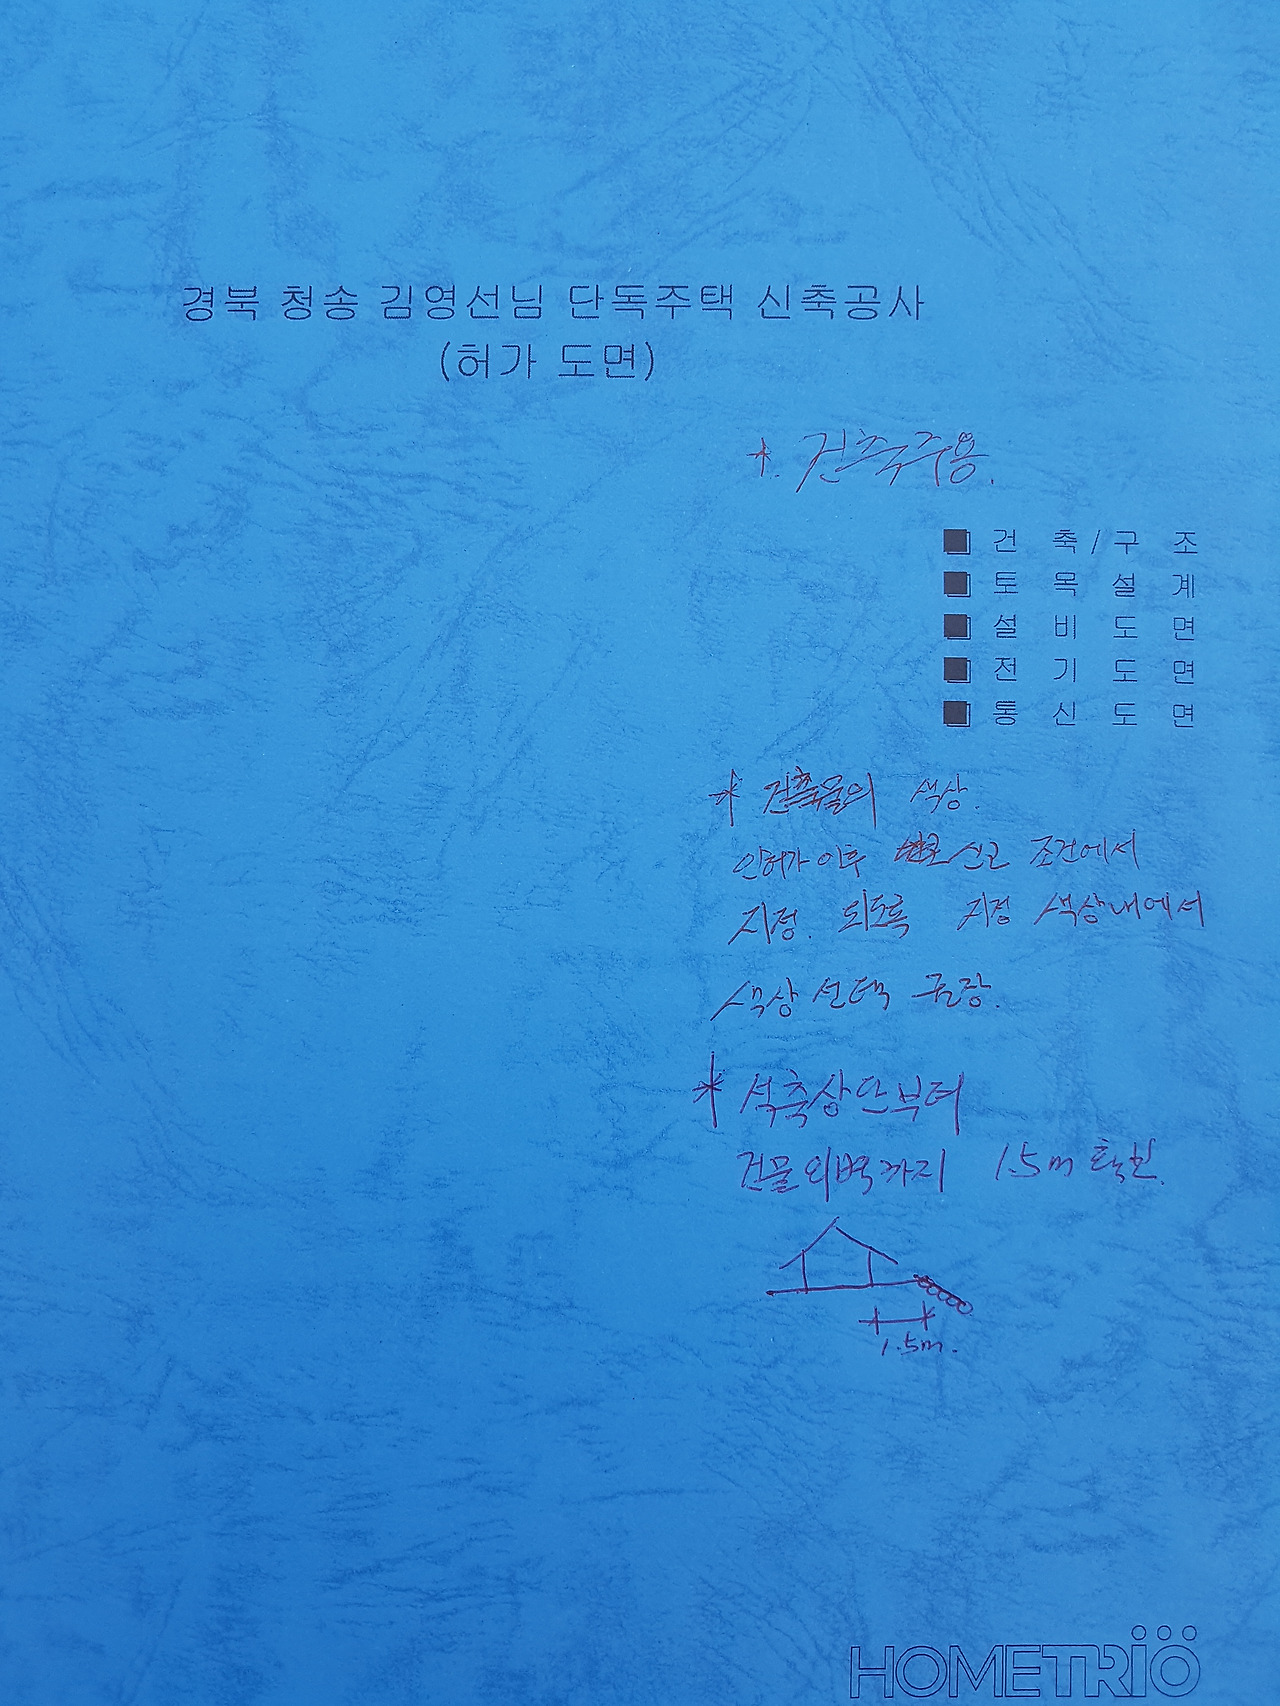 경북 청송 김영선님 단독주택 신축공사
(허가 도면)
* 건축주용.
■ 건 축/구 조
■ 토 목 설 계
■ 설 비 도 면
■ 전 기 도 면
■ 통 신 도 면
* 건축물의 색상.
인허가 이후 신고 조건에서
지정. 되도록 지정 색상내에서
색상 선택 권장.
* 석축상단부터
건물외벽까지 1.5m 확보.
1.5m.
HOMETRIO